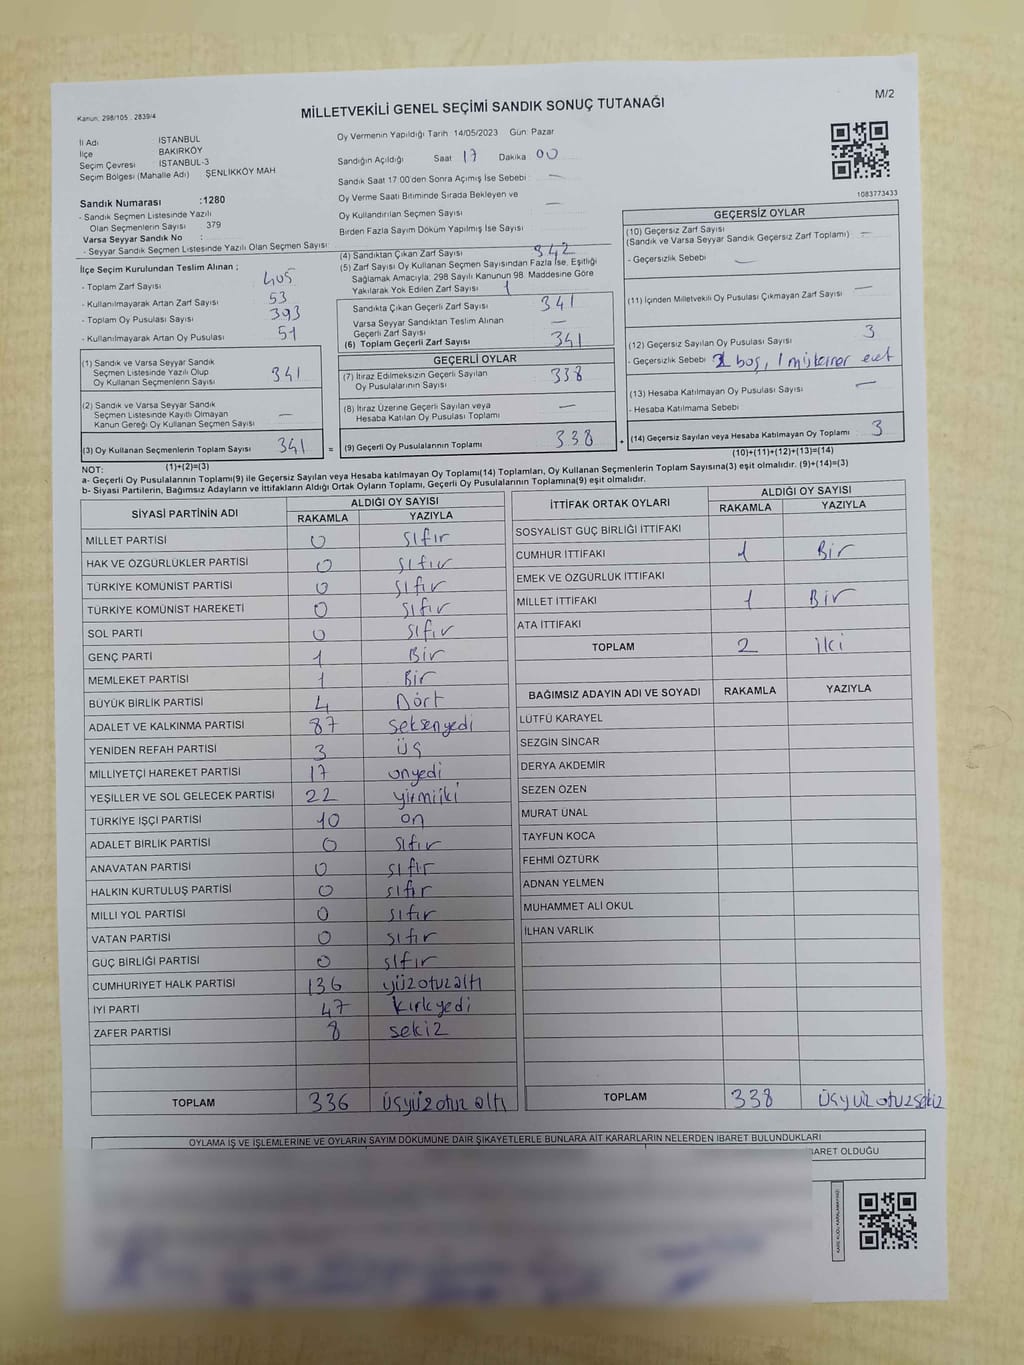 Kanun: 298/105 , 2839/4
MİLLETVEKİLİ GENEL SEÇİMİ SANDIK SONUÇ TUTANAĞI
M/2
İl Adı İSTANBUL
İlçe BAKIRKÖY
Seçim Çevresi İSTANBUL-3
Seçim Bölgesi (Mahalle Adı) ŞENLİKKÖY MAH
Oy Vermenin Yapıldığı Tarih 14/05/2023 Gün: Pazar
Sandığın Açıldığı Saat 17 Dakika 00
Sandık Saat 17:00'den Sonra Açılmış İse Sebebi —
Oy Verme Saati Bitiminde Sırada Bekleyen ve
Oy Kullandırılan Seçmen Sayısı —
Birden Fazla Sayım Döküm Yapılmış İse Sayısı
1083773433
Sandık Numarası :1280
- Sandık Seçmen Listesinde Yazılı
Olan Seçmenlerin Sayısı 379
Varsa Seyyar Sandık No :
- Seyyar Sandık Seçmen Listesinde Yazılı Olan Seçmen Sayısı:
İlçe Seçim Kurulundan Teslim Alınan ;
- Toplam Zarf Sayısı 405
- Kullanılmayarak Artan Zarf Sayısı 53
- Toplam Oy Pusulası Sayısı 393
- Kullanılmayarak Artan Oy Pusulası 51
(1) Sandık ve Varsa Seyyar Sandık
Seçmen Listesinde Yazılı Olup
Oy Kullanan Seçmenlerin Sayısı 341
(2) Sandık ve Varsa Seyyar Sandık
Seçmen Listesinde Kayıtlı Olmayan
Kanun Gereği Oy Kullanan Seçmen Sayısı —
(3) Oy Kullanan Seçmenlerin Toplam Sayısı 341 =
(1)+(2)=(3)
(4) Sandıktan Çıkan Zarf Sayısı 342
(5) Zarf Sayısı Oy Kullanan Seçmen Sayısından Fazla İse, Eşitliği
Sağlamak Amacıyla, 298 Sayılı Kanunun 98. Maddesine Göre
Yakılarak Yok Edilen Zarf Sayısı 1
Sandıkta Çıkan Geçerli Zarf Sayısı 341
Varsa Seyyar Sandıktan Teslim Alınan
Geçerli Zarf Sayısı —
(6) Toplam Geçerli Zarf Sayısı 341
GEÇERLİ OYLAR
(7) İtiraz Edilmeksizin Geçerli Sayılan
Oy Pusulalarının Sayısı 338
(8) İtiraz Üzerine Geçerli Sayılan veya
Hesaba Katılan Oy Pusulası Toplamı —
(9) Geçerli Oy Pusulalarının Toplamı 338 +
GEÇERSİZ OYLAR
(10) Geçersiz Zarf Sayısı
(Sandık ve Varsa Seyyar Sandık Geçersiz Zarf Toplamı) —
- Geçersizlik Sebebi —
(11) İçinden Milletvekili Oy Pusulası Çıkmayan Zarf Sayısı —
(12) Geçersiz Sayılan Oy Pusulası Sayısı 3
- Geçersizlik Sebebi boş, 1
(13) Hesaba Katılmayan Oy Pusulası Sayısı —
- Hesaba Katılmama Sebebi
(14) Geçersiz Sayılan veya Hesaba Katılmayan Oy Toplamı 3
(10)+(11)+(12)+(13)=(14)
NOT:
a- Geçerli Oy Pusulalarının Toplamı(9) ile Geçersiz Sayılan veya Hesaba katılmayan Oy Toplamı(14) Toplamları, Oy Kullanan Seçmenlerin Toplam Sayısına(3) eşit olmalıdır. (9)+(14)=(3)
b- Siyasi Partilerin, Bağımsız Adayların ve İttifakların Aldığı Ortak Oyların Toplamı, Geçerli Oy Pusulalarının Toplamına(9) eşit olmalıdır.
SİYASİ PARTİNİN ADI ALDIĞI OY SAYISI
RAKAMLA YAZIYLA
MİLLET PARTİSİ 0 sıfır
HAK VE ÖZGÜRLÜKLER PARTİSİ 0 sıfır
TÜRKİYE KOMÜNİST PARTİSİ 0 sıfır
TÜRKİYE KOMÜNİST HAREKETİ 0 sıfır
SOL PARTİ 0 sıfır
GENÇ PARTİ 1 Bir
MEMLEKET PARTİSİ 1 Bir
BÜYÜK BİRLİK PARTİSİ 4 Dört
ADALET VE KALKINMA PARTİSİ 87 seksenyedi
YENİDEN REFAH PARTİSİ 3 üç
MİLLİYETÇİ HAREKET PARTİSİ 17 onyedi
YEŞİLLER VE SOL GELECEK PARTİSİ 22 yirmiiki
TÜRKİYE İŞÇİ PARTİSİ 10 on
ADALET BİRLİK PARTİSİ 0 sıfır
ANAVATAN PARTİSİ 0 sıfır
HALKIN KURTULUŞ PARTİSİ 0 sıfır
MİLLİ YOL PARTİSİ 0 sıfır
VATAN PARTİSİ 0 sıfır
GÜÇ BİRLİĞİ PARTİSİ 0 sıfır
CUMHURİYET HALK PARTİSİ 136 yüzotuzaltı
İYİ PARTİ 47 kırkyedi
ZAFER PARTİSİ 8 sekiz
TOPLAM 336 üçyüzotuzaltı
İTTİFAK ORTAK OYLARI ALDIĞI OY SAYISI
RAKAMLA YAZIYLA
SOSYALİST GÜÇ BİRLİĞİ İTTİFAKI
CUMHUR İTTİFAKI 1 Bir
EMEK VE ÖZGÜRLÜK İTTİFAKI
MİLLET İTTİFAKI 1 Bir
ATA İTTİFAKI
TOPLAM 2 iki
BAĞIMSIZ ADAYIN ADI VE SOYADI RAKAMLA YAZIYLA
LÜTFÜ KARAYEL
SEZGİN SİNCAR
DERYA AKDEMİR
SEZEN ÖZEN
MURAT ÜNAL
TAYFUN KOCA
FEHMİ ÖZTÜRK
ADNAN YELMEN
MUHAMMET ALİ OKUL
İLHAN VARLIK
TOPLAM 338 üçyüzotuzsekiz
OYLAMA İŞ VE İŞLEMLERİNE VE OYLARIN SAYIM DÖKÜMÜNE DAİR ŞİKAYETLERLE BUNLARA AİT KARARLARIN NELERDEN İBARET BULUNDUKLARI
İBARET OLDUĞU